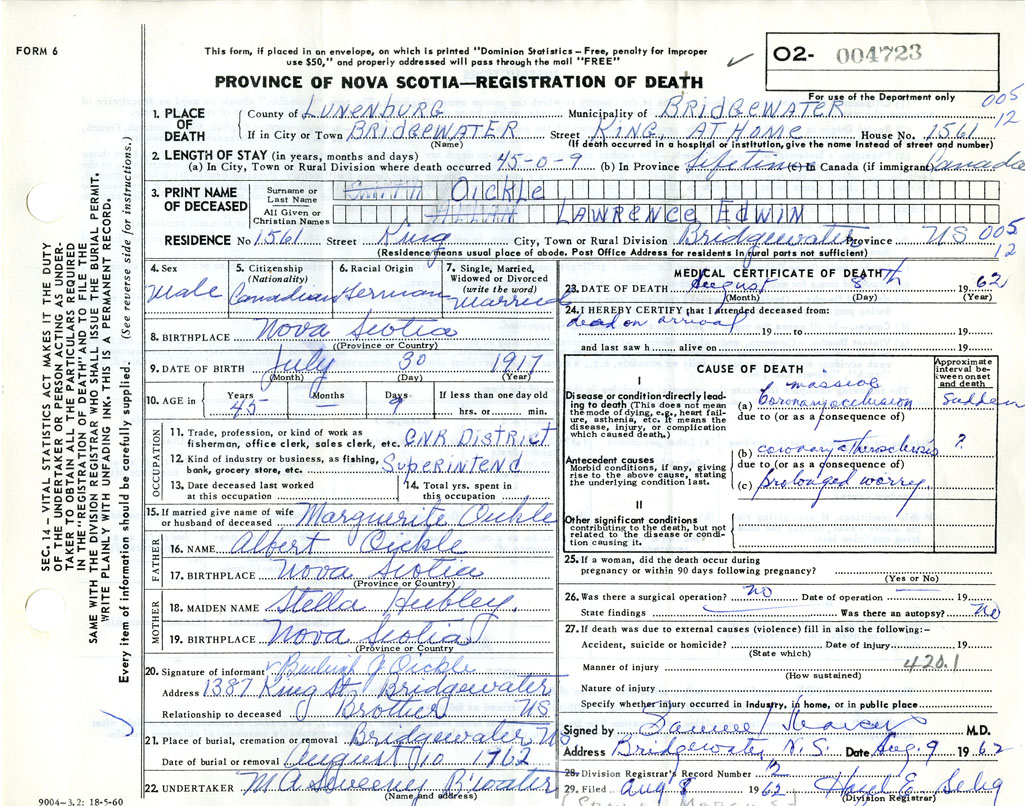 FORM 6
This form, if placed in an envelope, on which is printed "Dominion Statistics—Free, penalty for improper
use $50," and properly addressed will pass through the mail "FREE"
PROVINCE OF NOVA SCOTIA—REGISTRATION OF DEATH
O2- 004723
For use of the Department only
005
12
1. PLACE OF DEATH
County of LUNENBURG Municipality of BRIDGEWATER
If in City or Town BRIDGEWATER Street KING AT HOME House No. 1561
(Name) (If death occurred in a hospital or institution, give the name instead of street and number)
2. LENGTH OF STAY (in years, months and days)
(a) In City, Town or Rural Division where death occurred 45-0-9 (b) In Province Lifetime (c) In Canada (if immigrant) Canada
3. PRINT NAME OF DECEASED
Surname or Last Name OICKLE
All Given or Christian Names LAWRENCE EDWIN
RESIDENCE No 1561 Street King City, Town or Rural Division Bridgewater Province NS 005
12
(Residence means usual place of abode. Post Office Address for residents in rural parts not sufficient)
4. Sex
Male
5. Citizenship (Nationality)
Canadian
6. Racial Origin
German
7. Single, Married, Widowed or Divorced (write the word)
Married
8. BIRTHPLACE Nova Scotia
(Province or Country)
9. DATE OF BIRTH July 30 1917
(Month) (Day) (Year)
10. AGE in
Years Months Days If less than one day old
45 — 9 hrs. or min.
OCCUPATION
11. Trade, profession, or kind of work as
fisherman, office clerk, sales clerk, etc. CNR DISTRICT
12. Kind of industry or business, as fishing,
bank, grocery store, etc. SUPERINTEND
13. Date deceased last worked
at this occupation
14. Total yrs. spent in
this occupation
15. If married give name of wife
or husband of deceased Marguerite Oickle
FATHER
16. NAME Albert Oickle
17. BIRTHPLACE Nova Scotia
(Province or Country)
MOTHER
18. MAIDEN NAME Stella Hubley
19. BIRTHPLACE Nova Scotia
(Province or Country)
20. Signature of informant Burleigh J Oickle
Address 1387 King St. Bridgewater
Relationship to deceased Brother NS
21. Place of burial, cremation or removal Bridgewater NS
Date of burial or removal August 10 1962
22. UNDERTAKER M A Sweeney B'water
(Name and address)
9004-3.2: 18-5-60
MEDICAL CERTIFICATE OF DEATH
23. DATE OF DEATH August 8th 1962
(Month) (Day) (Year)
24. I HEREBY CERTIFY that I attended deceased from:
dead on arrival 19 to 19
and last saw h alive on 19
CAUSE OF DEATH
Approximate interval between onset and death
I
Disease or condition directly leading to death (This does not mean the mode of dying, e.g., heart failure, asthenia, etc. It means the disease, injury, or complication which caused death.)
massive
(a) Coronary occlusion Sudden
due to (or as a consequence of)
Antecedent causes
Morbid conditions, if any, giving rise to the above cause, stating the underlying condition last.
(b) coronary atherosclerosis ?
due to (or as a consequence of)
(c) prolonged worry.
II
Other significant conditions
contributing to the death, but not related to the disease or condition causing it.
25. If a woman, did the death occur during
pregnancy or within 90 days following pregnancy?
(Yes or No)
26. Was there a surgical operation? no Date of operation 19
State findings Was there an autopsy? No
27. If death was due to external causes (violence) fill in also the following:—
Accident, suicide or homicide? Date of injury 19
(State which)
Manner of injury 420.1
(How sustained)
Nature of injury
Specify whether injury occurred in industry, in home, or in public place
Signed by Samuel Marcus M.D.
Address Bridgewater, N.S. Date Aug. 9 1962
28. Division Registrar's Record Number 12
29. Filed Aug 8 1962 Hazel E.
(Division Registrar)
SEC. 14 – VITAL STATISTICS ACT MAKES IT THE DUTY
OF THE UNDERTAKER OR PERSON ACTING AS UNDER-
TAKER TO OBTAIN ALL THE PARTICULARS REQUIRED
IN THE "REGISTRATION OF DEATH" AND TO FILE THE
SAME WITH THE DIVISION REGISTRAR WHO SHALL ISSUE THE BURIAL PERMIT.
WRITE PLAINLY WITH UNFADING INK. THIS IS A PERMANENT RECORD.
Every item of information should be carefully supplied. (See reverse side for instructions.)